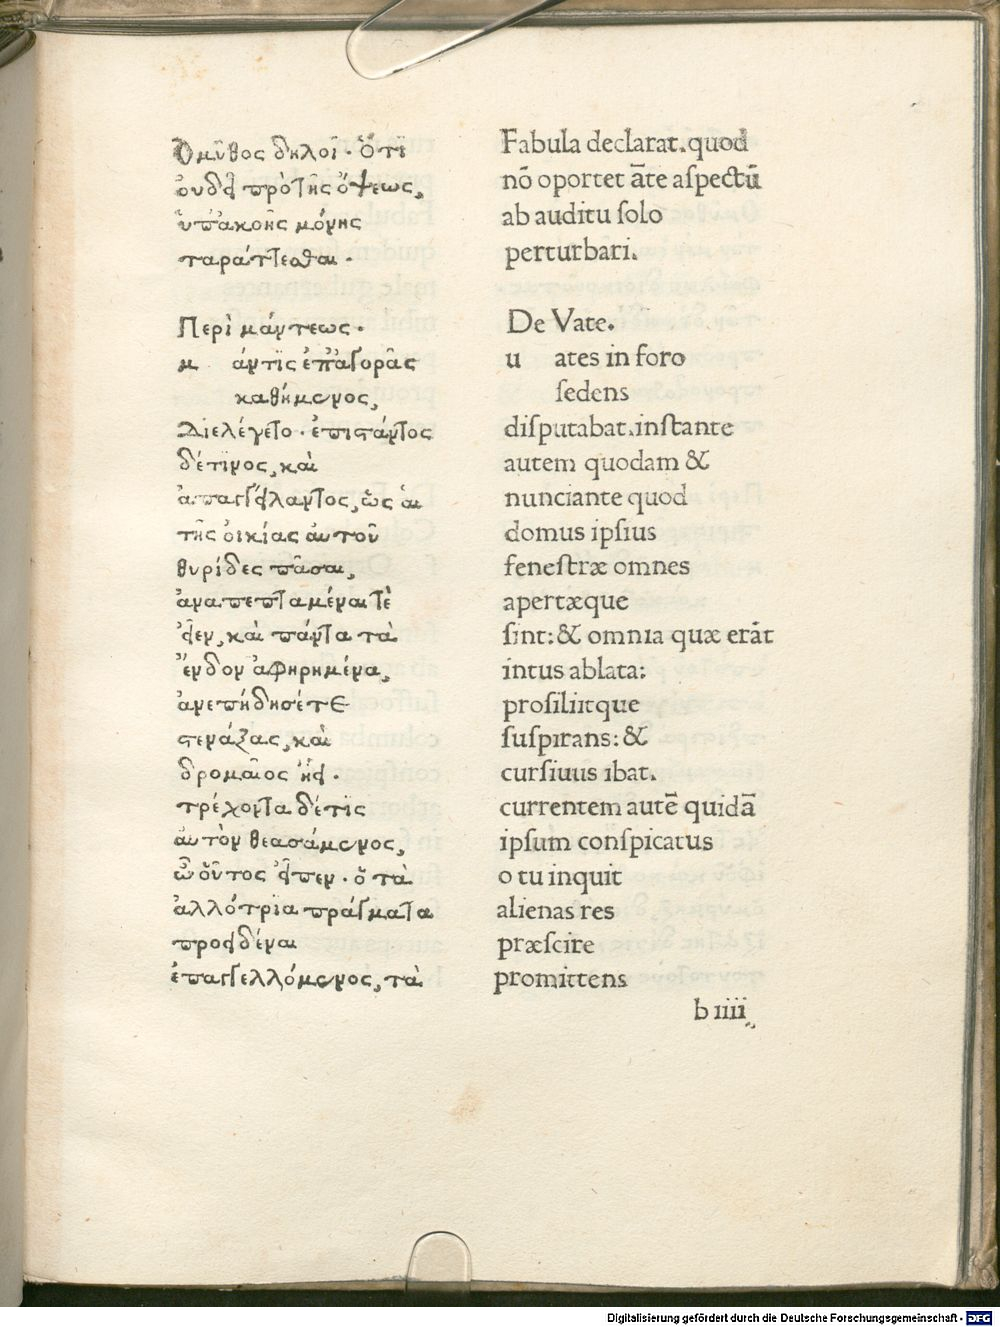 Ὁ μῦθος δηλοῖ · ὅτι
ὀυδεῖ πρὸ τῆς ὄψεως,
ὑπ ἀκοῆς μόνης
ταράττεσθαι ·
Περὶ μάντεως ·
μ άντις ἐπ ἀγορᾶς
καθήμενος,
Διελέγετο · ἐπιστάντος
δέ τινος, καὶ
ἀπαγγείλαντος, ὡς ἁι
τῆς ὀικίας ἀυτοῦ
θυρίδες πᾶσαι,
ἀναπεπταμέναι τὲ
εἶεν, καὶ πάντα τὰ
ἔνδον ἀφηρημένα,
ἀνεπήδησέ τε
στενάξας, καὶ
δρομαῖος ἤει ·
τρέχοντα δέ τις
ἀυτὸν θεασάμενος,
ὦ ὅυτος εἶπεν · ὅ τὰ
ἀλλότρια πράγματα
προειδέναι
ἐπαγγελλόμενος, τὰ
Fabula declarat. quod
nō oportet āte aſpectū
ab auditu ſolo
perturbari.
De Vate.
u ates in foro
ſedens
diſputabat. inſtante
autem quodam &
nunciante quod
domus ipſius
feneſtræ omnes
apertæque
ſint: & omnia quæ erāt
intus ablata:
prosiliitque
ſuſpirans: &
curſiuus ibat.
currentem autē quidā
ipſum conſpicatus
o tu inquit
alienas res
præſcire
promittens
b iiii
Digitalisierung gefördert durch die Deutsche Forschungsgemeinschaft - DFG